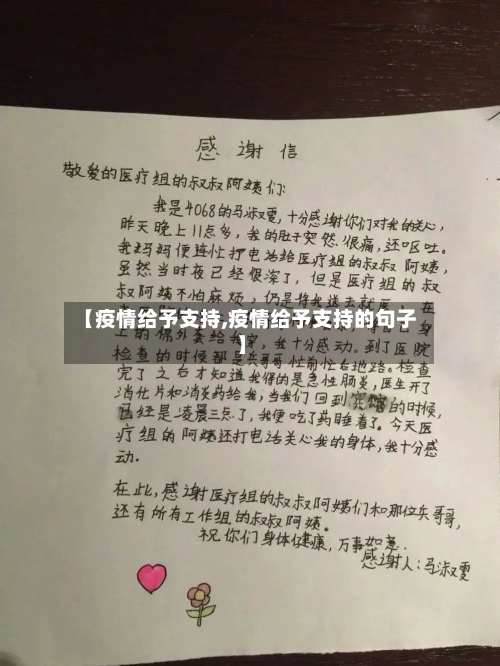 感谢信
敬爱的医疗组的叔叔阿姨们:
我是4068的马淑雯,十分感谢你们对我的关心,
昨天晚上11点多,我的肚子突然很痛,还呕吐。
我妈妈便连忙打电话给医疗组的叔叔阿姨,
虽然当时夜已经很深了,但是医疗组的叔
叔阿姨不怕麻烦,仍是将我送去就医。在
【疫情给予支持,疫情给予支持的句子
】
上的棉外套给我穿,我十分感动。到了医院
检查的时候都是兵哥哥忙前忙后地跑。检查
完了之后才知道我得的是急性肠炎,医生开了
消化片和消炎药给我,当我们回到宾馆的时候,
已经是凌晨三点了,我便吃了药睡着了。今天医
疗组的阿姨还打电话关心我的身体,我十分感
动。
在此,感谢医疗组的叔叔阿姨们和那位兵哥哥,
还有所有工作组的叔叔阿姨。
祝你们身体健康,万事如意.
感谢人:马淑雯